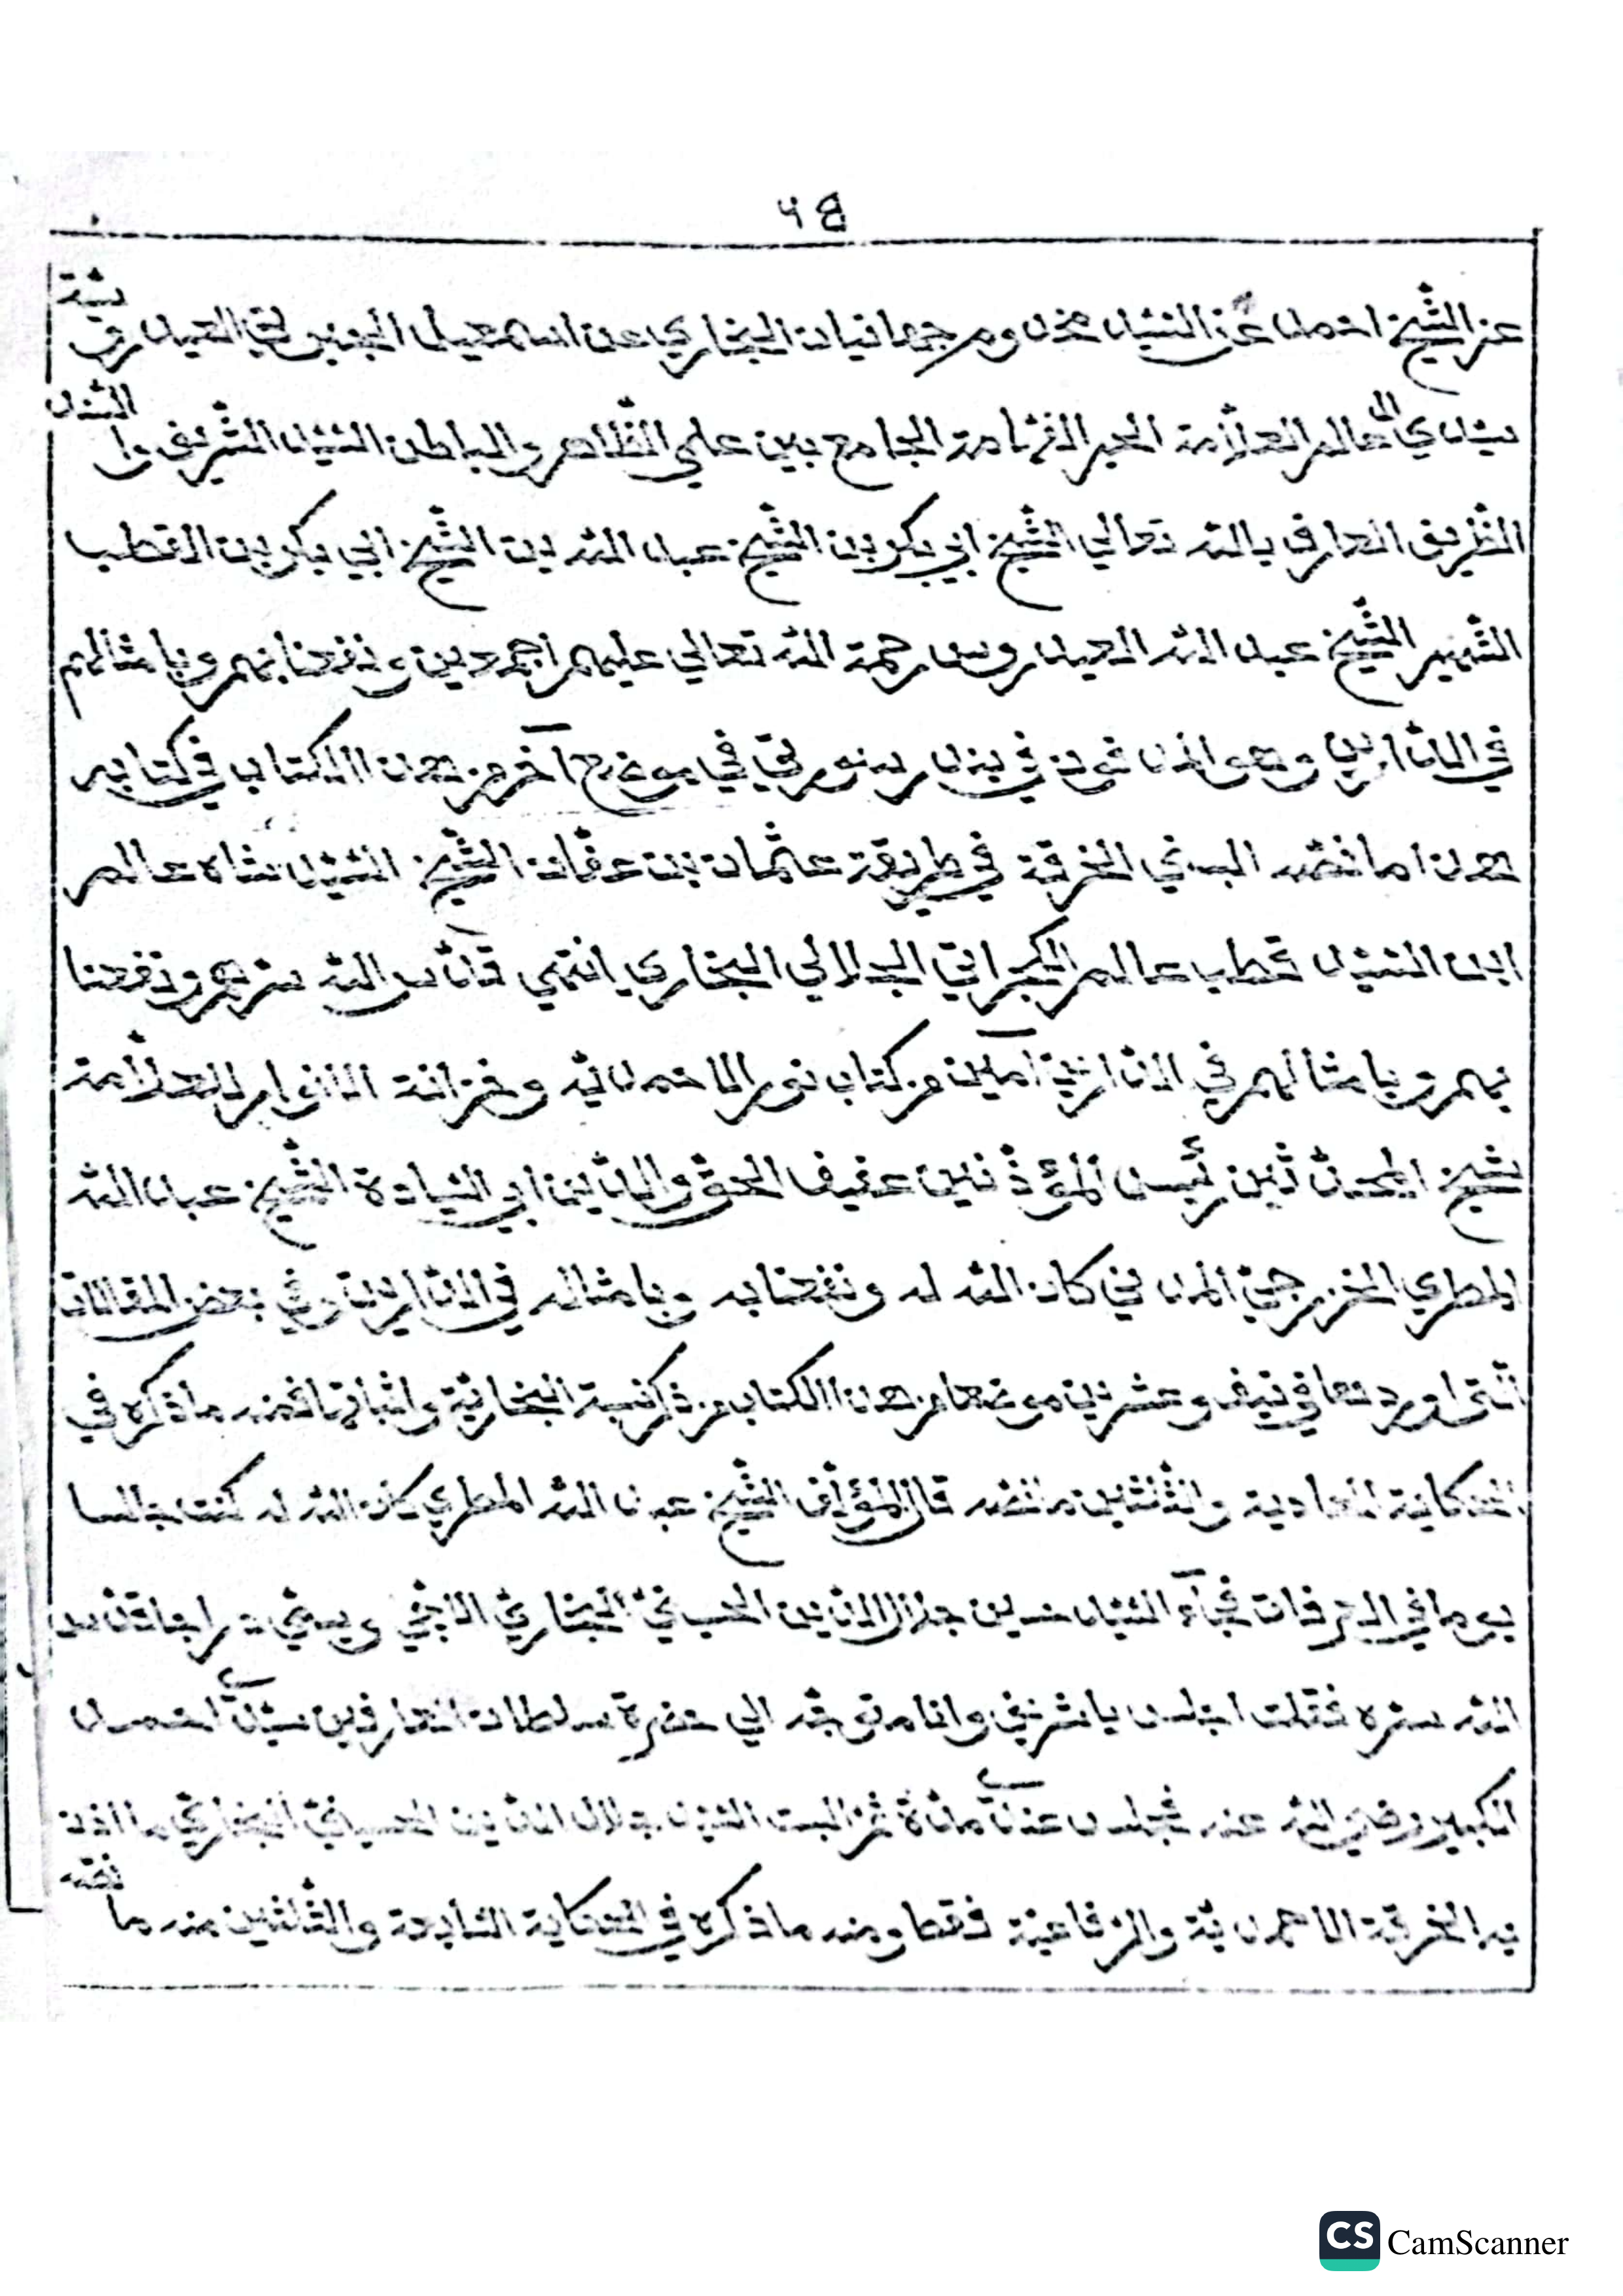 عن الشيخ احمد عن السيد مخدوم جهانيان البخاري عن اسمعيل الجبرتي العيدروسية
سيدي العالم العلامة الحبر الفهامة الجامع بين علمي الظاهر والباطن السيد الشريف والسند
الظريف العارف بالله تعالي الشيخ ابي بكر بن الشيخ عبد الله بن الشيخ ابي بكر بن القطب
الشهير الشيخ عبد الله العيدروس رحمة الله تعالي عليهم اجمعين ونفعنا بهم وبامثالهم
في الدارين وهو المدفون في بندر في موضع آخر من هذا الكتاب في كتابه
هذا ما نصه البسني الخرقة في طريقة عثمان بن عفان الشيخ السيد شاه عالم
ابن السيد قطب عالم الكجراتي الجلالي البخاري انتهي قدس الله سرهم ونفعنا
بهم وبامثالهم في الدارين آمين من كتاب نور الاحمدية وخزانة الانوار للعلامة
شيخ المحدثين رئيس المؤذنين عفيف الحق والدين ابي السيادة الشيخ عبد الله
المطري الخزرجي المدني كان الله له ونفعنا به وبامثاله في الدارين وفي بعض المقالات
التي اوردتها في نيف وعشرين موضعا من هذا الكتاب من ذكر نسبة البخارية واثباتها فمنه ما ذكره في
الحكاية الحادية والثلثين ما نصه قال المؤلف الشيخ عبد الله المطري كان الله له كنت جالسا
يوما في العرفات فجآء السيد حسين جلال الدين الحسيني البخاري الاجي ويسمي براجا قدس
الله سره فقلت اجلس يا شريف وانا متوجه الي حضرة سلطان العارفين سيدي احمد
الكبير رضي الله عنه فجلس عندي مدة ثم البست السيد جلال الدين الحسيني البخاري ما اذن
به الخرقة الاحمدية والرفاعية فقط ومنه ما ذكره في الحكاية السابعة والثلثين منه ما نصه
CS CamScanner